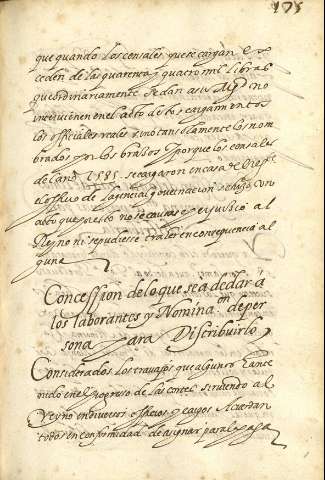 175
que quando los censales que se cargan ex
ceden de las quarenta y quatro mil libras
que ordinariamente se dan a su Magd no
intervienen en el acto de los cargamentos
los officiales reales sino tan solamente los nom
brados por los brazos y porque los censales
del año 1585 se cargaron en casa de
el officio de la general governacion se hizo con
abto que por esto no se causase perjuicio al
Reyno ni se pudiesse traher en consequencia al
guna
Concession de lo que se a de dar á
los laborantes y Nominaon de per
sona para Distribuirlo
Considerados los travajos que algunos an te
nido en el progreso de las cortes sirviendo al
Reyno en diversos officios y cargos Acuerdan
todos en conformidad de asignar para la paga